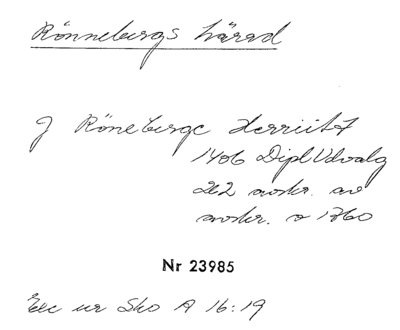 Rönnebergs härad
J Röneberge Herriitz
1406 Dipl Udvalg
262 avskr. av
avskr. o 1760
Nr 23985
Exc ur Sko A 16:19